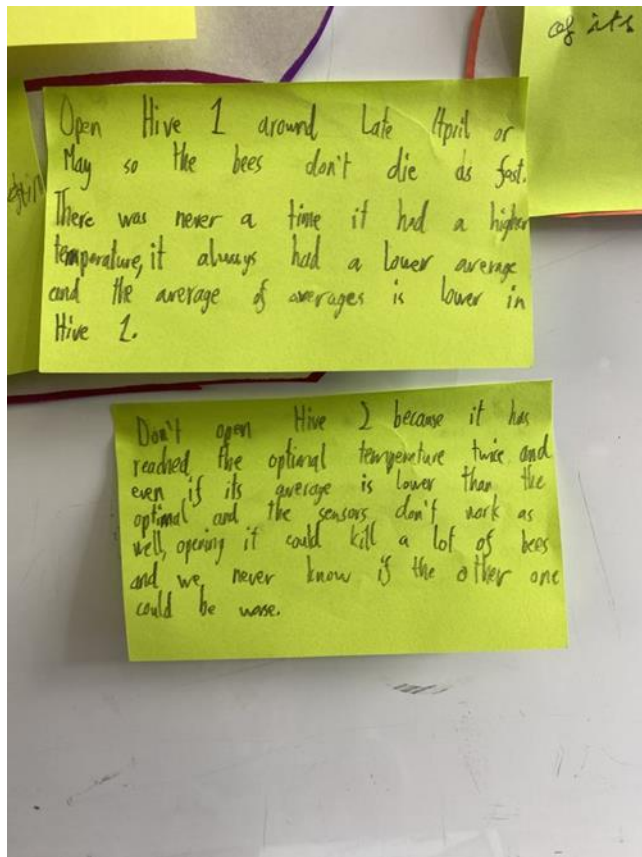 of its
Open Hive 1 around Late April or
May so the bees don't die as fast.
There was never a time it had a higher
temperature, it always had a lower average
and the average of averages is lower in
Hive 1.
Don't open Hive 2 because it has
reached the optimal temperature twice and
even if its average is lower than the
optimal and the sensors don't work as
well, opening it could kill a lot of bees
and we never know if the other one
could be worse.